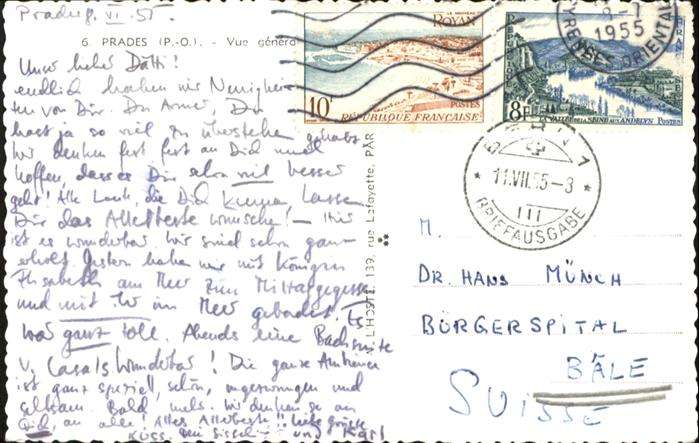 Prades, VI. 55.
6 PRADES (P.-O.) - Vue généra
Unser lieber Dätti!
endlich haben wir Neuigkei-
ten von Dir. Du Armer, Du
hast ja so viel zu überstehen gehabt
Wir denken fest fest an Dich und
hoffen, dass es Dir schon viel besser
geht! Alle Leute, die Dich kennen, lassen
Dir das Allerbeste wünschen! – Hier
ist es wunderbar. Wir sind schon ganz
erholt. Gestern haben wir mit Königin
Elisabeth am Meer zum Mittag gegessen
und mit Ihr im Meer gebadet. Es
war ganz toll. Abends eine Bachsuite
v. Casals wunderbar! Die ganze Ambiance
ist ganz speziell, schön, ungezwungen und
seltsam. Bald mehr. Wir denken so an
Dich, an alle! Alles Allerbeste! liebe Grüsse
Küss und Karl
L'HOSTE, 139, rue Lafayette, PAR
ROYAN
10F
POSTES
RÉPUBLIQUE FRANÇAISE
8F
VALLÉE DE LA SEINE AUX ANDELYS
POSTES
1955
PYRENEES ORIENTALES
BERN 1
11.VII.55-8
III
BRIEFAUSGABE
M.
DR. HANS MÜNCH
BÜRGERSPITAL
BÂLE
SUISSE